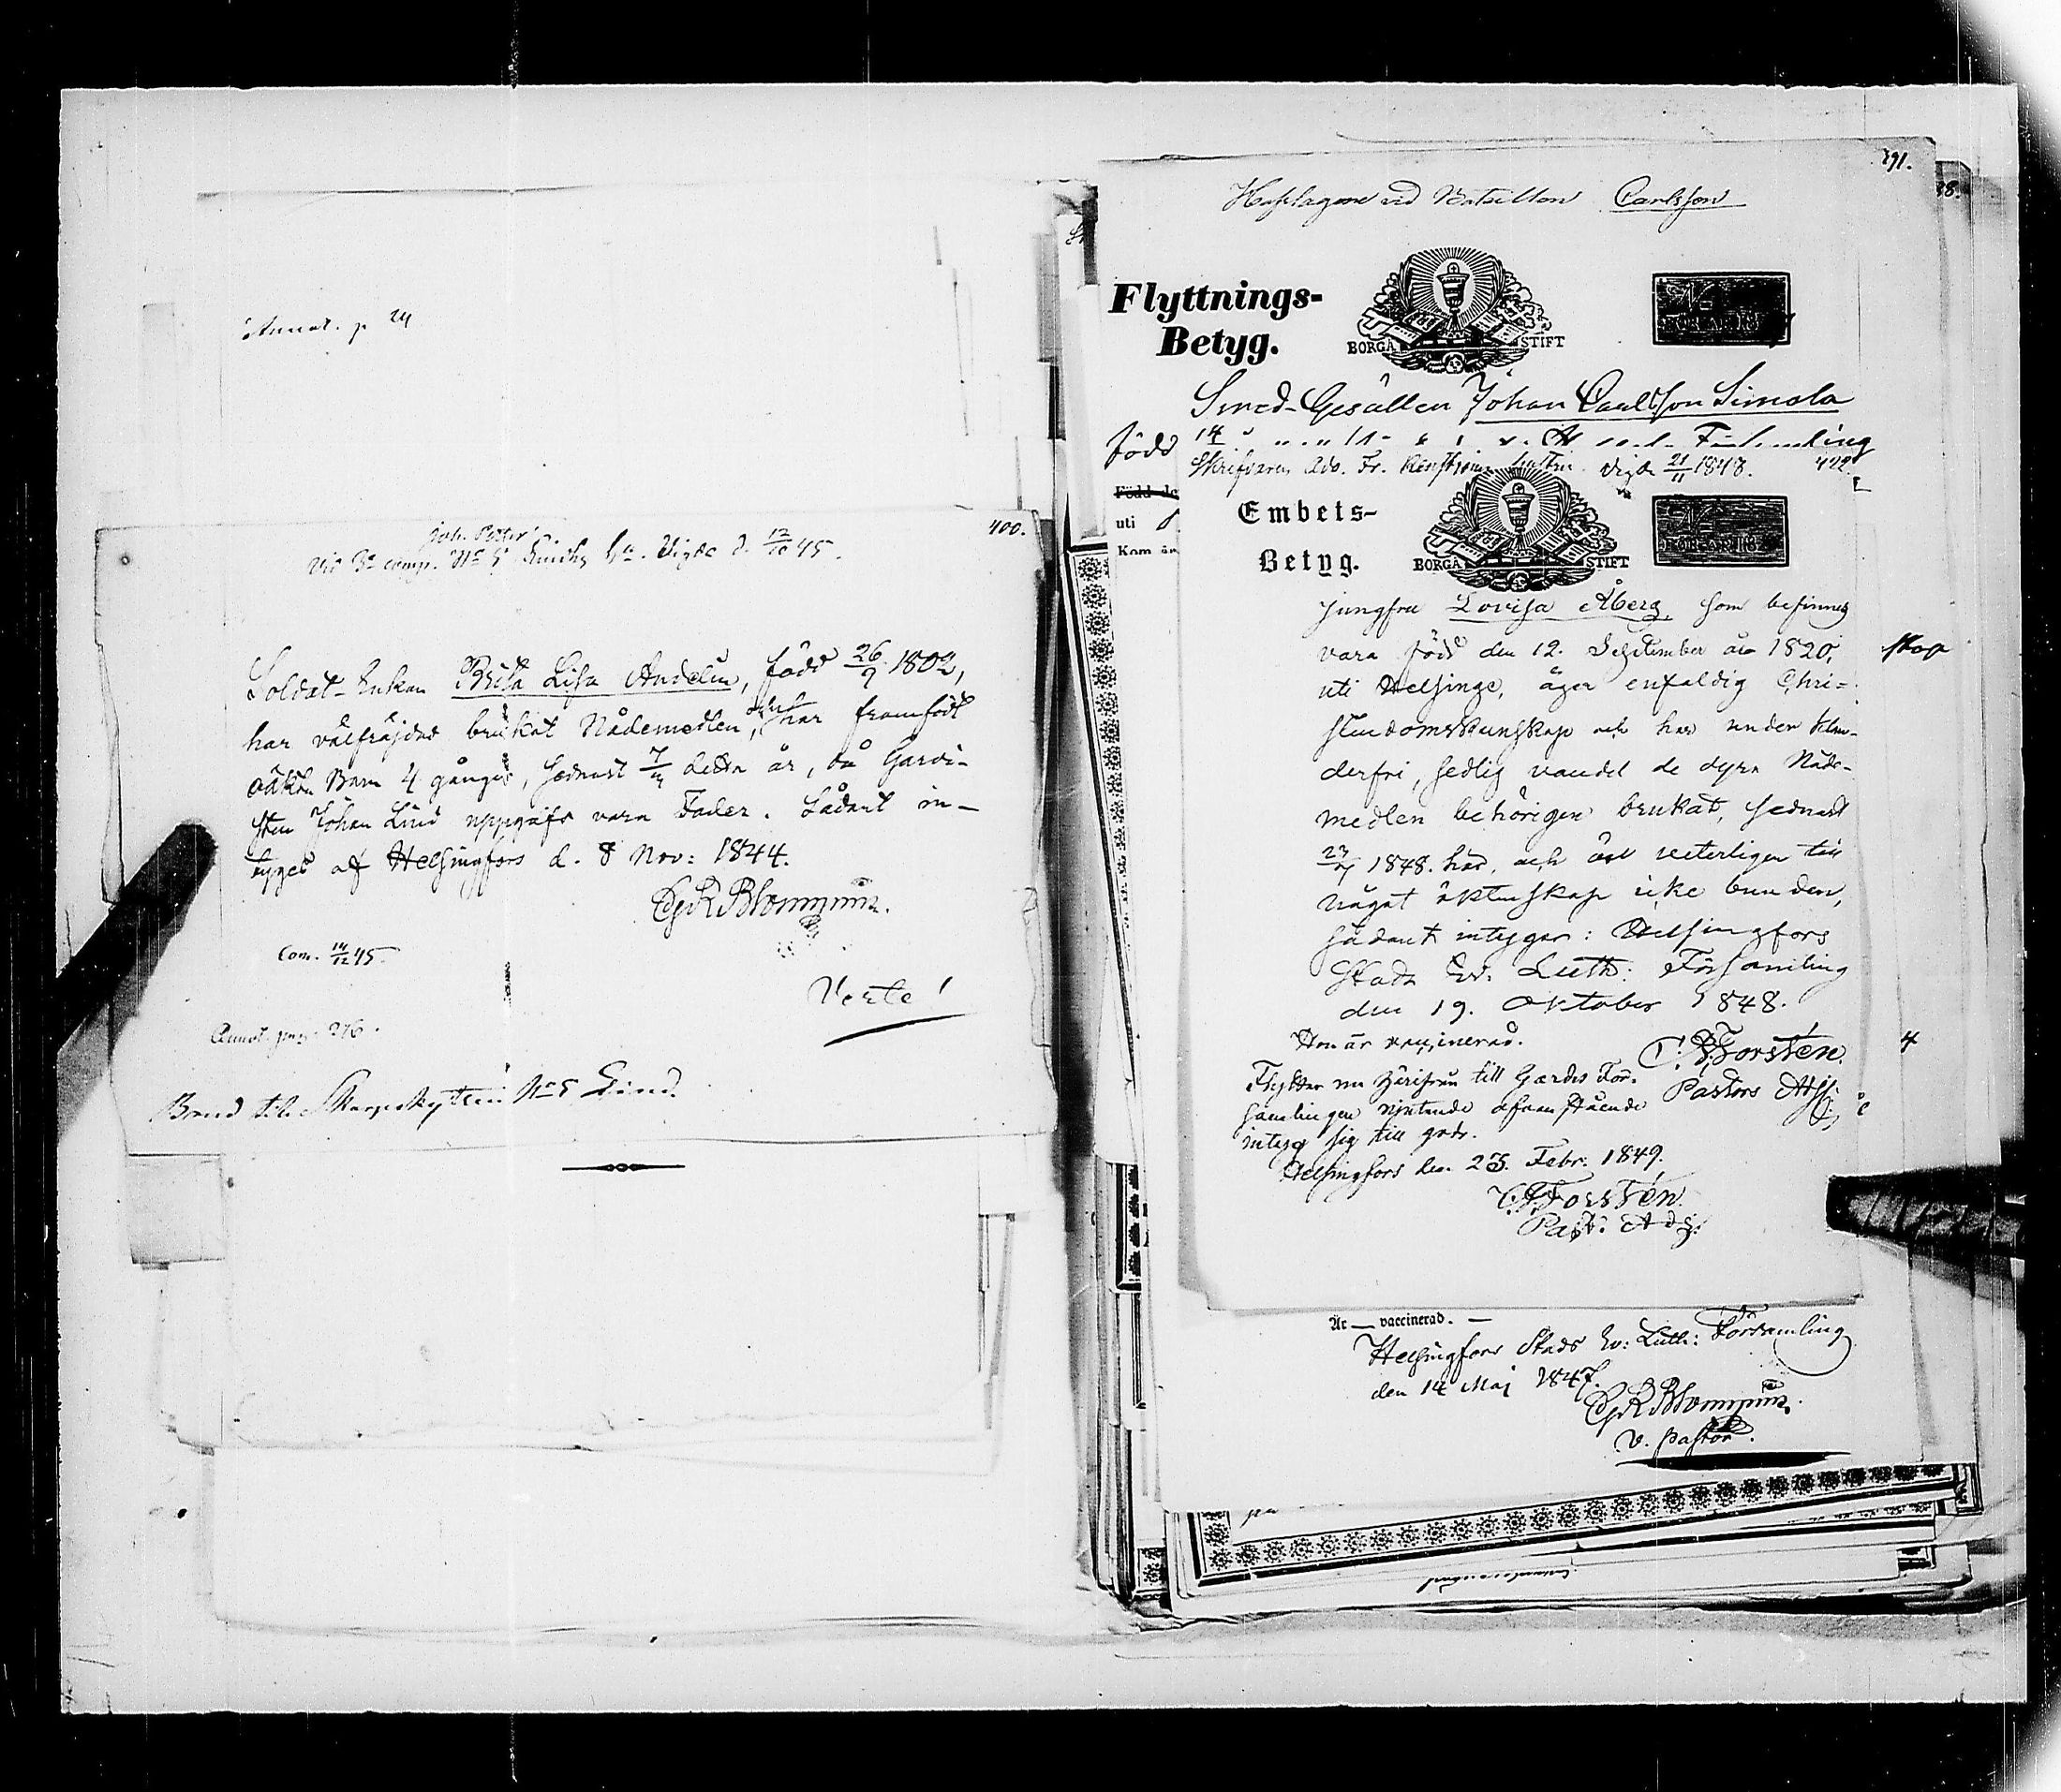 Annot. p 24
400.
Joh. Petter
vid 3e comp. No 5 Linds ha. Vigde d. 12/10 45.
Soldat-Enkan Brita Lisa Andelin, född 26/9 1802,
har välfräjdad brukat Nådemedlen, men har framfödt
oäkta Barn 4 gånger, sednast 7/4 detta år, då Gardi-
sten Johan Lind uppgifs vara Fader. Sådant in-
tygas af Helsingfors d. 8 Nov: 1844.
Blommqvist.
Com. 14/12 45.
Verte!
Annot. pag. 276.
Brud till Skarpskytten No 5 Lind.
391.
38.
Hofslagare vid Bataillon Carlsson
Flyttnings-
Betyg.
BORGÅ STIFT
Smed-Gesällen Johan Carlsson Simola
född 14
Skrifvaren Adv. Fr. vigde 21/11 1848. 422.
Född de
uti
Kom
Embets-
Betyg.
BORGÅ STIFT
Jungfru Lovisa Åberg, som befinnes
vara född den 12. September år 1820,
uti Helsinge, äger enfaldig Chri-
stendomskunskap och har under klan-
derfri, sedlig vandel de dyra Nåde-
medlen behörigen brukat, sednast
1848. här, och är veterligen till
något äktenskap icke bunden,
sådant intygar: Helsingfors
Stads Ev. Luth: Församling
den 19. Oktober 1848.
Hon är vaccinerad.
Forstén.
Pastors Adj:
Flyttar nu härifrån till Gardes För-
samlingen njutande ofvanstående
intyg sig till godo.
Helsingfors den 23. Febr. 1849.
Forstén.
Past. Adj.
skap
4
Är — vaccinerad. —
Helsingfors Stads Ev: Luth: Församling
den 14 Maj 1847.
Blommqvist.
v. pastor.